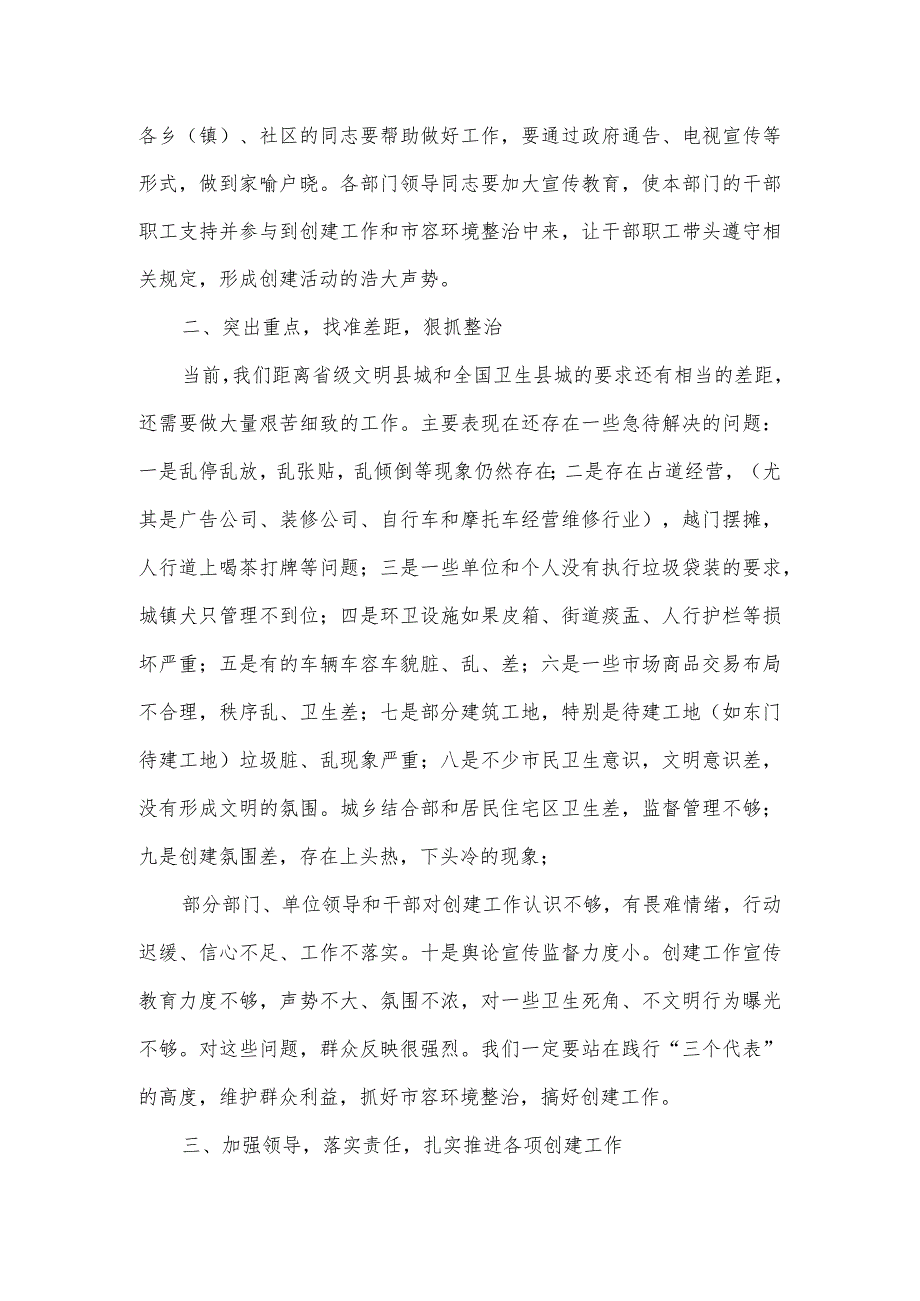 各乡（镇）、社区的同志要帮助做好工作，要通过政府通告、电视宣传等
形式，做到家喻户晓。各部门领导同志要加大宣传教育，使本部门的干部
职工支持并参与到创建工作和市容环境整治中来，让干部职工带头遵守相
关规定，形成创建活动的浩大声势。
二、突出重点，找准差距，狠抓整治
当前，我们距离省级文明县城和全国卫生县城的要求还有相当的差距，
还需要做大量艰苦细致的工作。主要表现在还存在一些急待解决的问题：
一是乱停乱放，乱张贴，乱倾倒等现象仍然存在；二是存在占道经营，（尤
其是广告公司、装修公司、自行车和摩托车经营维修行业），越门摆摊，
人行道上喝茶打牌等问题；三是一些单位和个人没有执行垃圾袋装的要求，
城镇犬只管理不到位；四是环卫设施如果皮箱、街道痰盂、人行护栏等损
坏严重；五是有的车辆车容车貌脏、乱、差；六是一些市场商品交易布局
不合理，秩序乱、卫生差；七是部分建筑工地，特别是待建工地（如东门
待建工地）垃圾脏、乱现象严重；八是不少市民卫生意识，文明意识差，
没有形成文明的氛围。城乡结合部和居民住宅区卫生差，监督管理不够；
九是创建氛围差，存在上头热，下头冷的现象；
部分部门、单位领导和干部对创建工作认识不够，有畏难情绪，行动
迟缓、信心不足、工作不落实。十是舆论宣传监督力度小。创建工作宣传
教育力度不够，声势不大、氛围不浓，对一些卫生死角、不文明行为曝光
不够。对这些问题，群众反映很强烈。我们一定要站在践行“三个代表”
的高度，维护群众利益，抓好市容环境整治，搞好创建工作。
三、加强领导，落实责任，扎实推进各项创建工作